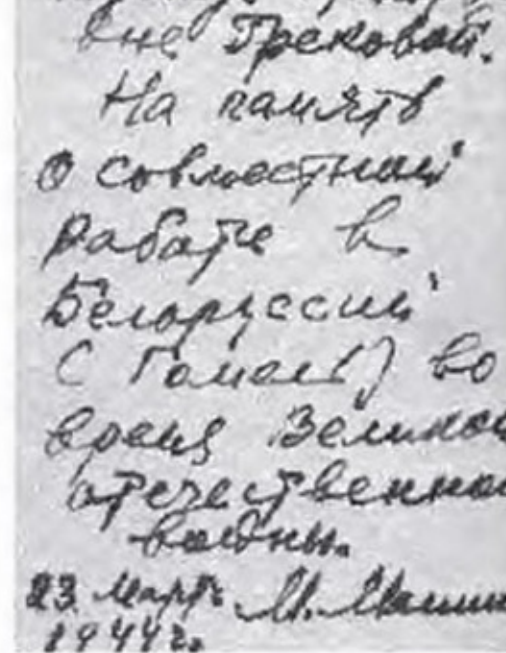 вне Грековой.
На память
о совместной
работе в
Белоруссии
(Гомель) во
время Великой
отечественной
войны.
23 март
1944 г.